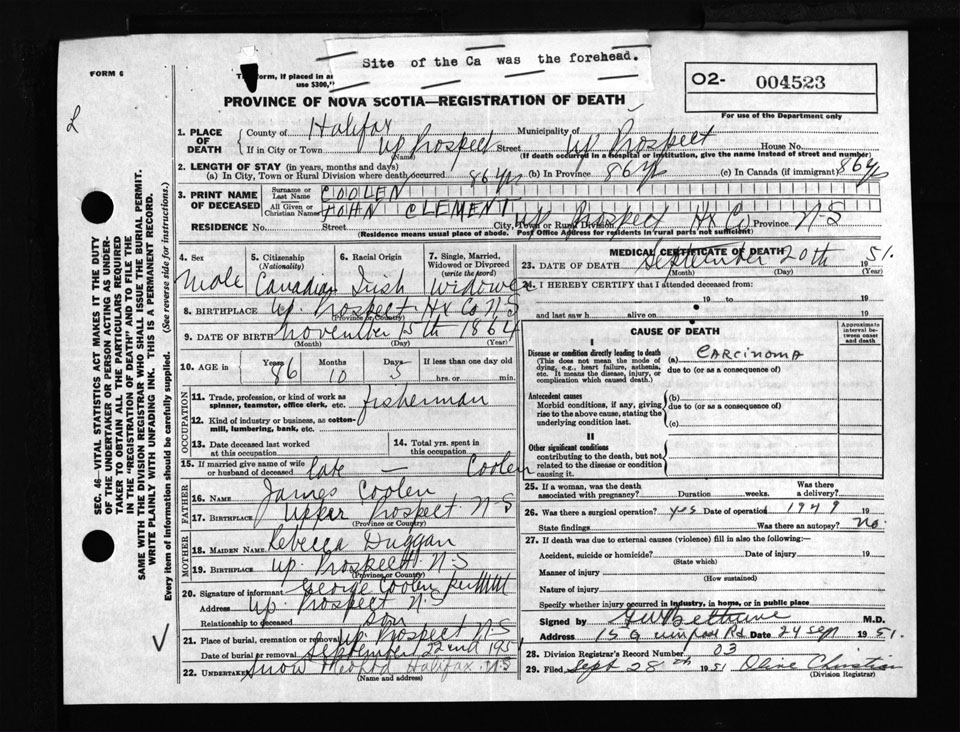 FORM 6
Site of the Ca was the forehead.
O2- 004523
For use of the Department only
PROVINCE OF NOVA SCOTIA—REGISTRATION OF DEATH
1. PLACE OF DEATH County of Halifax Municipality of Up Prospect
If in City or Town Up Prospect Street House No.
(Name) (If death occurred in a hospital or institution, give the name instead of street and number)
2. LENGTH OF STAY (in years, months and days)
(a) In City, Town or Rural Division where death occurred 86 yrs (b) In Province 86 y (c) In Canada (if immigrant) 86 y
3. PRINT NAME OF DECEASED Surname or Last Name COOLEN
All Given or Christian Names JOHN CLEMENT
RESIDENCE No. Street City, Town or Rural Division Up Prospect Hx Co Province N-S
(Residence means usual place of abode. Post Office Address for residents in rural parts not sufficient)
4. Sex 5. Citizenship (Nationality) 6. Racial Origin 7. Single, Married, Widowed or Divorced (write the word)
Male Canadian Irish Widowe
8. BIRTHPLACE Up. Prospect Hx Co N-S
(Province or Country)
9. DATE OF BIRTH November 15th 1864
(Month) (Day) (Year)
10. AGE in Years 86 Months 10 Days 5 If less than one day old hrs. or min.
OCCUPATION
11. Trade, profession, or kind of work as spinner, teamster, office clerk, etc. fisherman
12. Kind of industry or business, as cotton-mill, lumbering, bank, etc.
13. Date deceased last worked at this occupation
14. Total yrs. spent in this occupation
15. If married give name of wife or husband of deceased late — Coolen
FATHER
16. NAME James Coolen
17. BIRTHPLACE Upper Prospect N-S
(Province or Country)
MOTHER
18. MAIDEN NAME Rebecca Duggan
19. BIRTHPLACE Up. Prospect N-S
(Province or Country)
20. Signature of informant George Coolen
Address Up. Prospect N-S
Relationship to deceased Son
21. Place of burial, cremation or removal Up Prospect N-S
Date of burial or removal September 22nd 1951
22. UNDERTAKER Snow Halifax N-S
(Name and address)
MEDICAL CERTIFICATE OF DEATH
23. DATE OF DEATH September 20th 1951.
(Month) (Day) (Year)
24. I HEREBY CERTIFY that I attended deceased from:
19 to 19
and last saw h alive on 19
CAUSE OF DEATH
Approximate interval between onset and death
I
Disease or condition directly leading to death (a) CARCINOMA
(This does not mean the mode of dying, e.g., heart failure, asthenia, etc. It means the disease, injury, or complication which caused death.)
due to (or as a consequence of)
Antecedent causes
Morbid conditions, if any, giving rise to the above cause, stating the underlying condition last.
(b)
due to (or as a consequence of)
(c)
II
Other significant conditions contributing to the death, but not related to the disease or condition causing it.
25. If a woman, was the death associated with pregnancy? Duration weeks. Was there a delivery?
26. Was there a surgical operation? Yes Date of operation 1949 19
State findings Was there an autopsy? No.
27. If death was due to external causes (violence) fill in also the following:
Accident, suicide or homicide? Date of injury 19
(State which)
Manner of injury
(How sustained)
Nature of injury
Specify whether injury occurred in industry, in home, or in public place
Signed by Bethune M.D.
Address Rd. Date 24 Sep 1951.
28. Division Registrar's Record Number 03
29. Filed Sept 28th 1951 Olive Christian
(Division Registrar)
SEC. 46—VITAL STATISTICS ACT MAKES IT THE DUTY
OF THE UNDERTAKER OR PERSON ACTING AS UNDER-
TAKER TO OBTAIN ALL THE PARTICULARS REQUIRED
IN THE "REGISTRATION OF DEATH" AND TO FILE THE
SAME WITH THE DIVISION REGISTRAR WHO SHALL ISSUE THE BURIAL PERMIT.
WRITE PLAINLY WITH UNFADING INK. THIS IS A PERMANENT RECORD.
Every item of information should be carefully supplied. (See reverse side for instructions.)